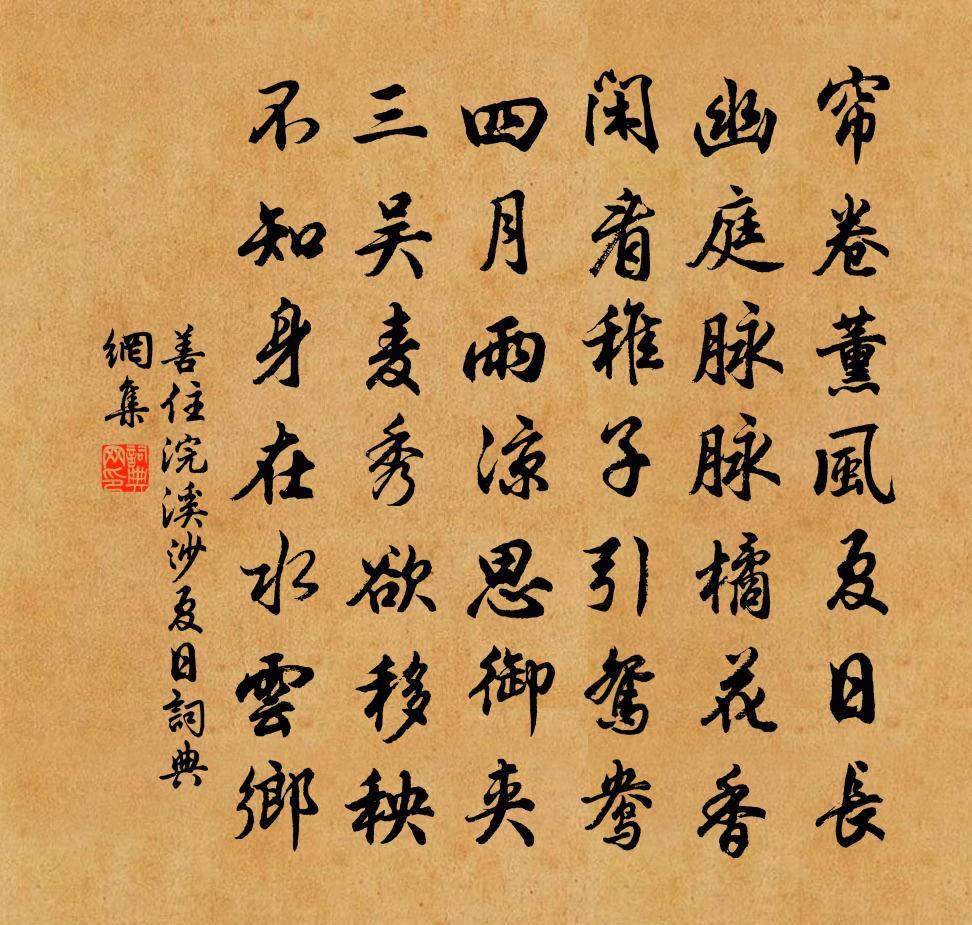 帘卷薰風夏日長
幽庭脉脉橘花香
閑看稚子引鴛鴦
四月雨凉思御夾
三吴麦秀欲移秧
不知身在水雲鄉
善住浣溪沙夏日詞典
網集
詞典網印